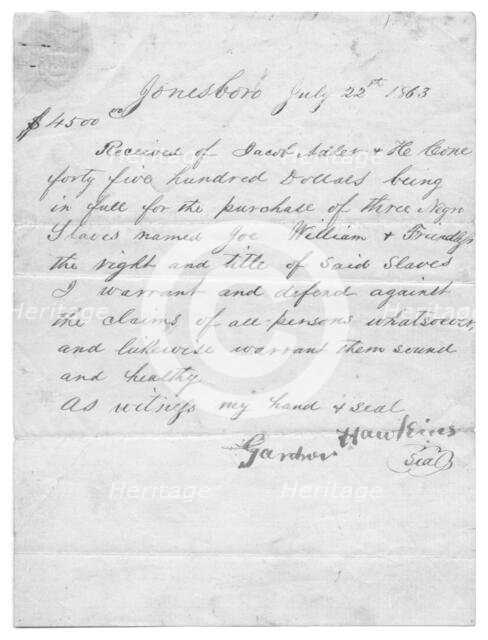 Jonesboro July 22st 1863
$4500 00
Received of Jacob Adler & H Cone
forty five hundred Dollars being
in full for the purchase of three Negro
Slaves named Joe William &
the right and title of Said Slaves
I warrant and defend against
the claims of all persons whatsoever,
and likewise warrant them sound
and healthy
As witness my hand & seal
Hawkins
Seal
Heritage
Heritage
Heritage
Heritage
Heritage
Heritage